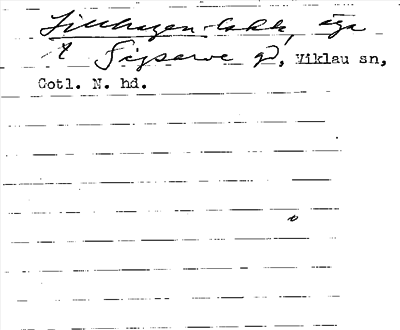 Lillhagen-lakk, äga
t Sigsarve gd, Viklau sn,
Gotl. N. hd.